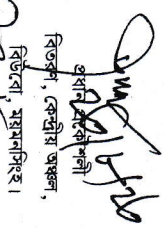 প্রধান প্রকৌশলী
বিতরণ, কেন্দ্রীয় অঞ্চল,
বিউবো, ময়মনসিংহ।